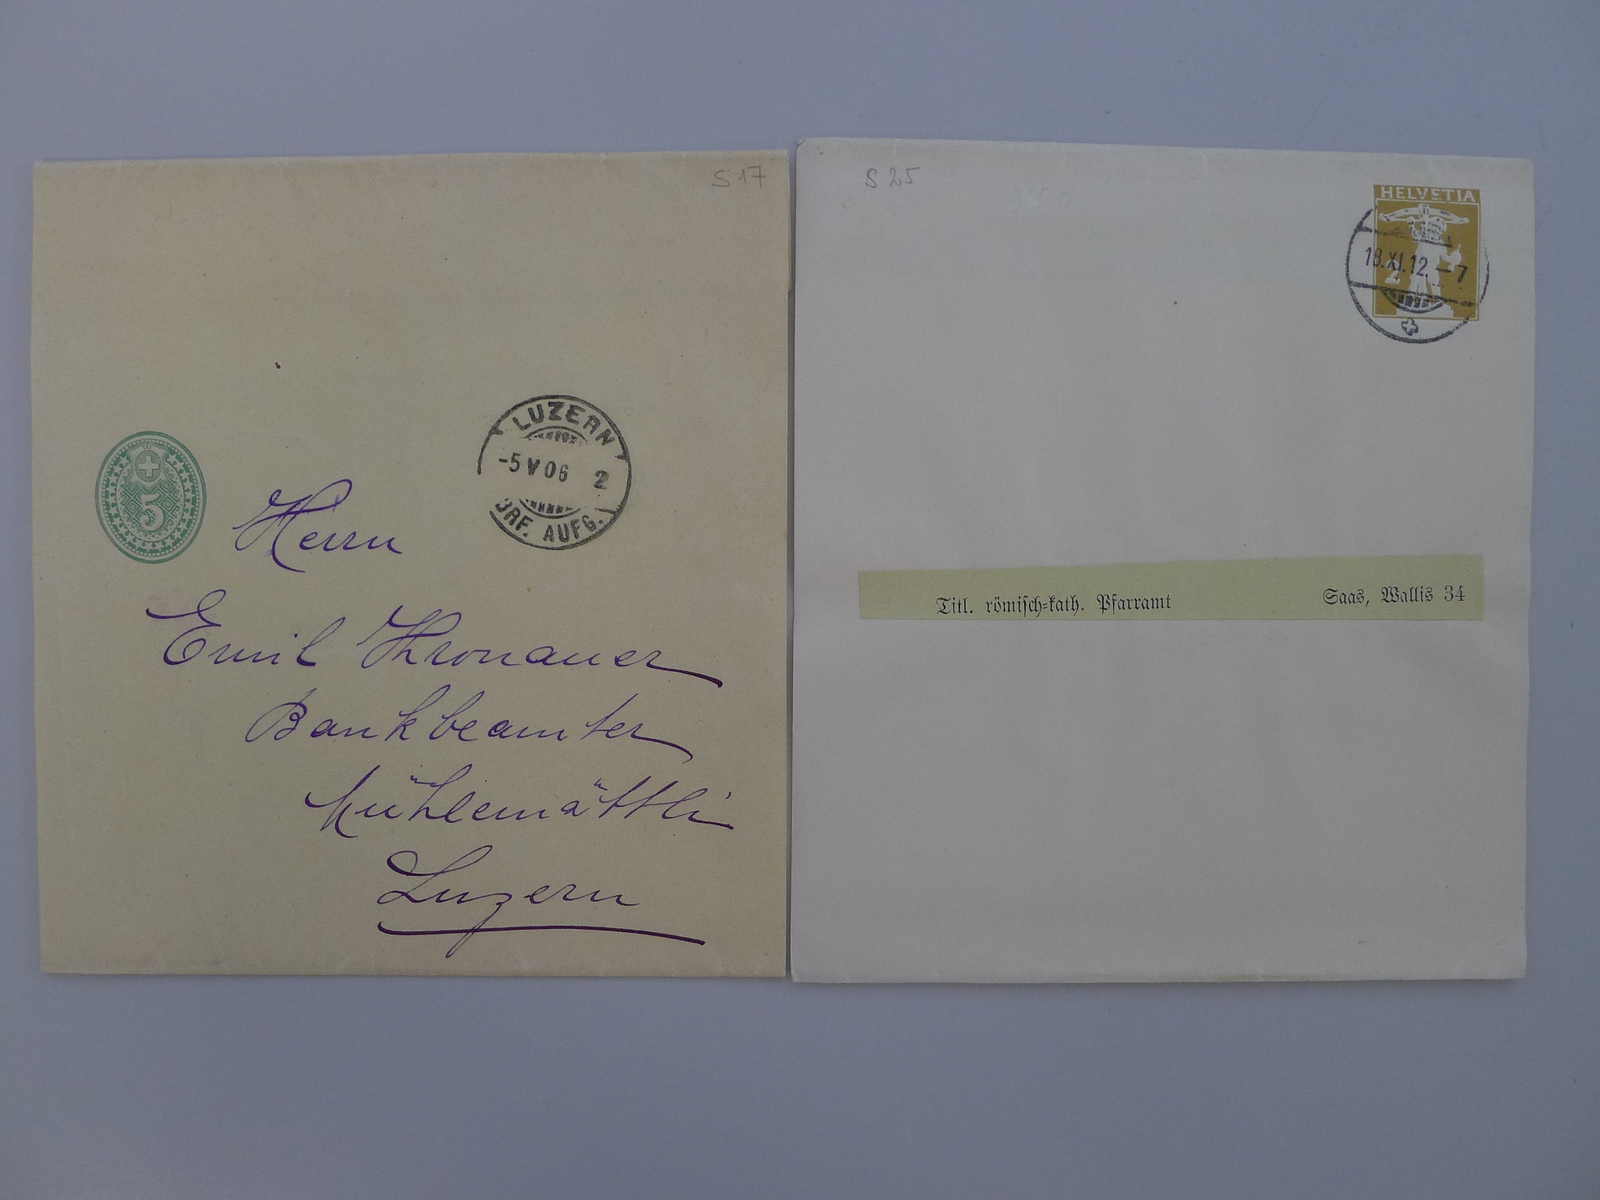 S 17
5
LUZERN
-5 V 06 2
BRF. AUFG.
Herrn
Emil Kronauer
Bankbeamter
Mühlemättli
Luzern
S 25
HELVETIA
2
18.XI.12.-7
Titl. römisch-kath. Pfarramt Saas, Wallis 34